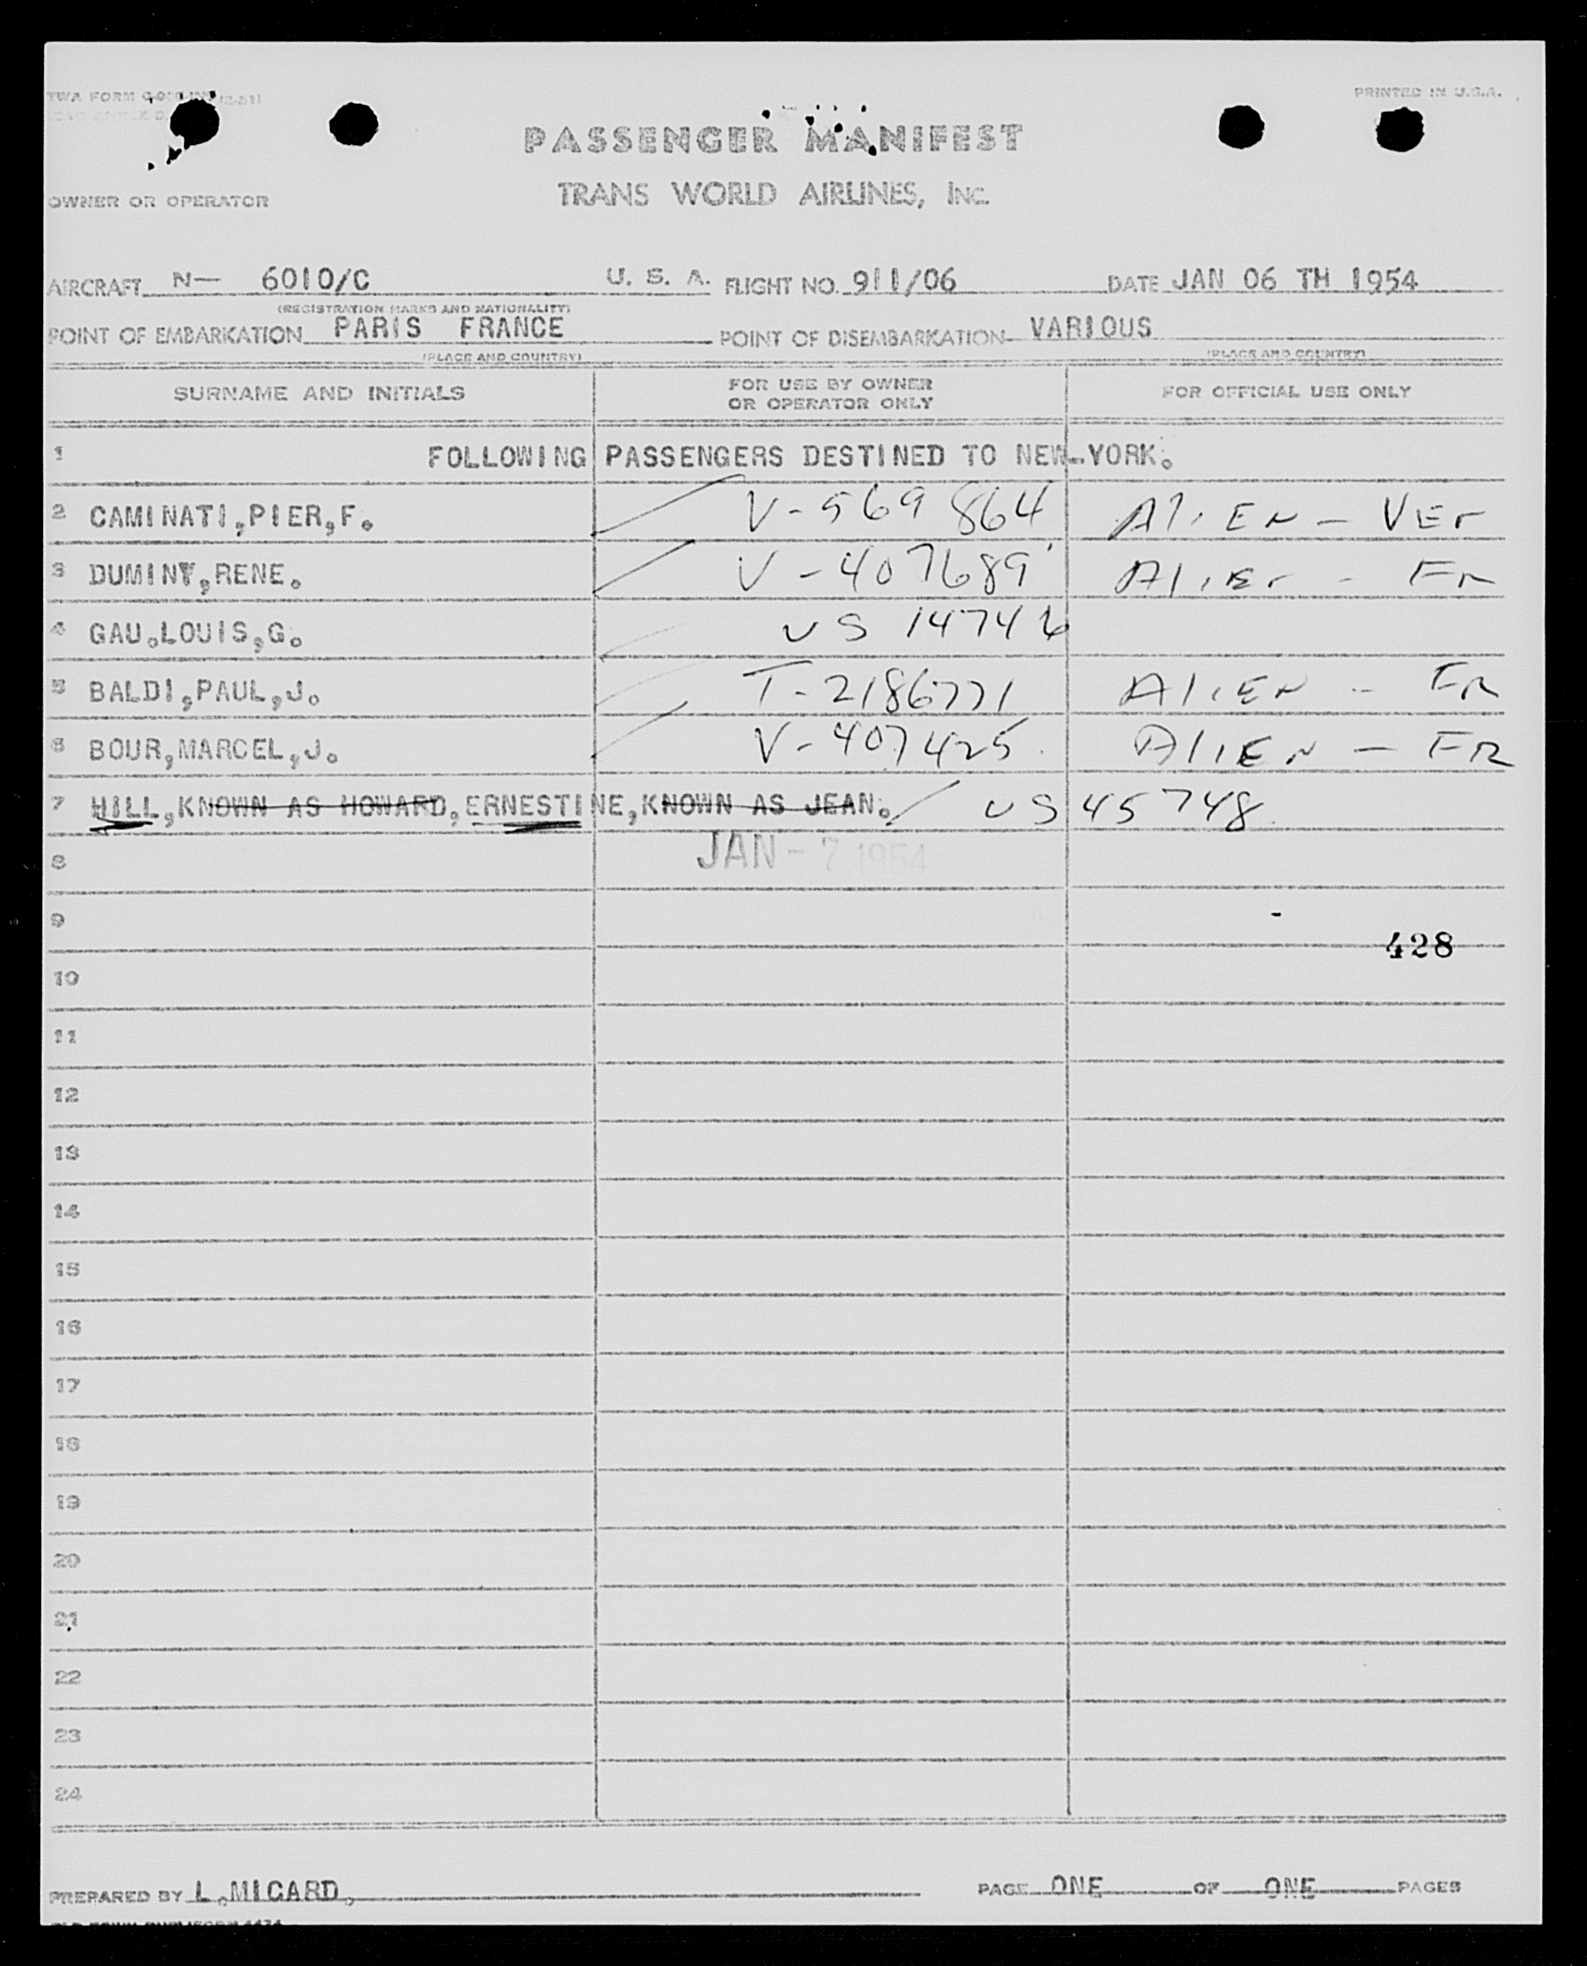 TWA FORM
PRINTED IN U.S.A.
PASSENGER MANIFEST
TRANS WORLD AIRLINES, INC.
OWNER OR OPERATOR
AIRCRAFT N— 6010/C U. S. A. FLIGHT NO. 911/06 DATE JAN 06 TH 1954
(REGISTRATION MARKS AND NATIONALITY)
POINT OF EMBARKATION PARIS FRANCE POINT OF DISEMBARKATION VARIOUS
(PLACE AND COUNTRY) (PLACE AND COUNTRY)
SURNAME AND INITIALS FOR USE BY OWNER OR OPERATOR ONLY FOR OFFICIAL USE ONLY
1 FOLLOWING PASSENGERS DESTINED TO NEW-YORK.
2 CAMINATI,PIER,F. V-569 864 ALIEN - VEN
3 DUMINY,RENE. V-407689 ALIEN - FR
4 GAU.LOUIS,G. US 14746
5 BALDI,PAUL,J. T-2186771 ALIEN - FR
6 BOUR,MARCEL,J. V-407425 ALIEN - FR
7 HILL,KNOWN AS HOWARD,ERNESTINE,KNOWN AS JEAN. US 45748
8 JAN - 7 1954
9
428
10
11
12
13
14
15
16
17
18
19
20
21
22
23
24
PREPARED BY L.MICARD. PAGE ONE OF ONE PAGES